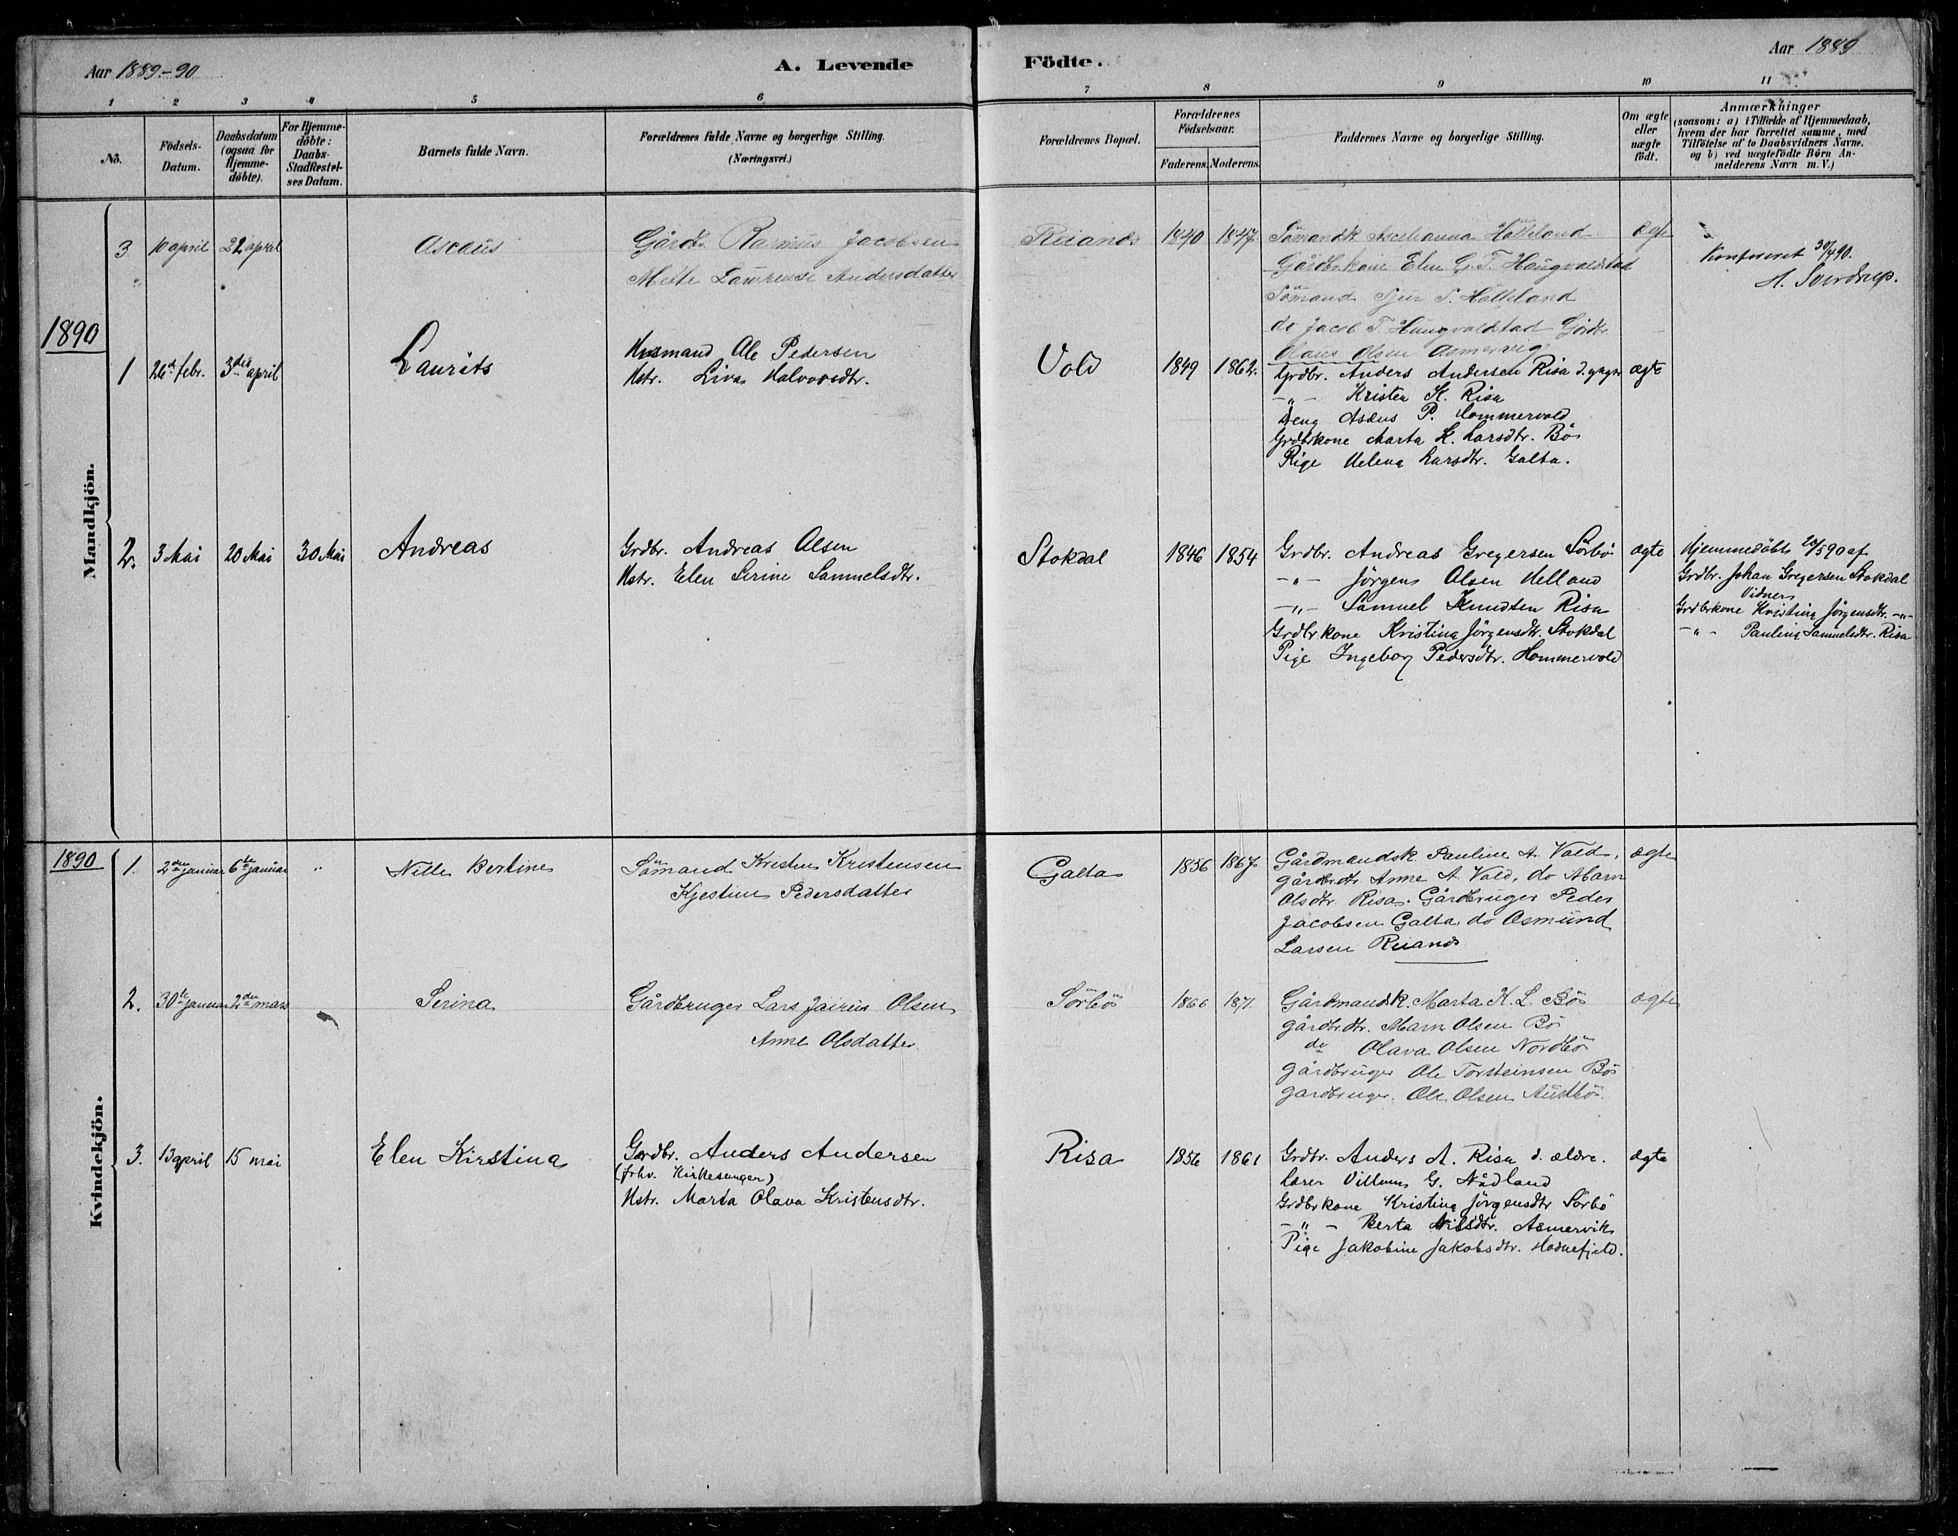 Aar 1889-90
A. Levende
Födte.
Aar 1889
1 2 3 4 5 6 7 8 9 10 11
No.
Födsels-Datum.
Daabsdatum (ogsaa for Hjemme-döbte).
For Hjemme-döbte: Daabs-Stadfæstel-ses Datum.
Barnets fulde Navn.
Forældrenes fulde Navne og borgerlige Stilling.
(Næringsvei.)
Forældrenes Bopæl.
Forældrenes Födselsaar.
Faderens. Moderens.
Faddernes Navne og borgerlige Stilling.
Om ægte eller uægte födt.
Anmærkninger
(saasom: a) i Tilfælde af Hjemmedaab,
hvem der har forrettet samme, med
Tilföielse af to Daabsvidners Navne.
og b) ved uægtefödte Börn An-
melderens Navn m. V.)
Mandkjön.
3. 10 april 22 april Ascaus Gårdb. Rasmus Jacobsen
Mette Lawrense Andersdatter
Reianes 1840 1847
Sömandk Ascehanna Hålleland
Gårdbrkone Elen G. T. Haugvaldstad
Sömand Sjur S. Hålleland
do Jacob T. Haugvaldstad Gårdbr.
Olaus Olsen Asmervig
ægte
Konfereret 30/4 90.
A. Sverdrup.
1890
1 26de febr. 3die april Laurits
Husmand Ole Pedersen
Hstr. Liva Halvorsdtr.
Vold 1849 1862.
Grdbr. Anders Andersen Risa d. yngre
-"- Kristen K. Risa
Deng Aseus P. Hommervold
Grdbrkone Marta K. Larsdtr. Bö
Pige Helena Larsdtr. Galta.
ægte
2. 3 Mai 20 Mai 30 Mai Andreas
Grdbr. Andreas Olsen
Hstr. Elen Serine Samuelsdtr.
Stokdal 1846 1854
Grdbr. Andreas Gregersen Sörbö
-"- Jörgen Olsen Helland
-"- Samuel Knudsen Risa
Grdbrkone Kristina Jörgensdtr. Stokdal
Pige Ingeborg Pedersdtr. Hommervold
ægte
Hjemmedöbt 20/5 90 af
Grdbr. Johan Gregersen Stokdal
Vidner
Grdbrkone Kristina Jörgensdtr. -"-
-"- Paulina Samuelsdtr. Risa
1890
Kvindekjön.
1. 2den januar 6te januar " Nille Bertine
Sömand Kristen Kristensen
Kjestine Pedersdatter
Galta 1856 1867
Gårdmandsk Pauline A. Vald,
gårdbrdtr. Anne A. Vald, do Maren
Olsdtr Risa. Gårdbruger Peder
Jacobsen Galta do Osmund
Larsen Reianes
ægte
2. 30te januar 2den mars Serina
Gårdbruger Lars Jairius Olsen
Anne Olsdatter
Sörbö 1866 1871
Gårdmandsk. Marta K. L. Bö
gårdbrdtr. Maren Olsen Bö
do Olava Olsen Nordbö
gårdbruger Ole Torsteinsen Bö
gardbruger. Ole Olsen Austbö.
ægte
3. 13 april 15 mai Elen Kirstina
Grdbr. Anders Andersen
(frhv. Kirkesanger)
Hstr. Marta Olava Kristensdtr.
Risa 1856 1861
Grdbr. Anders A. Risa d. ældre.
Lærer Villum G. Nådland
Grdbrkone Kristina Jörgensdtr Sörbö
-"- Berta Nilsdtr. Asmervik
Pige Jakobine Jakobsdtr. Hodnefjeld.
ægte